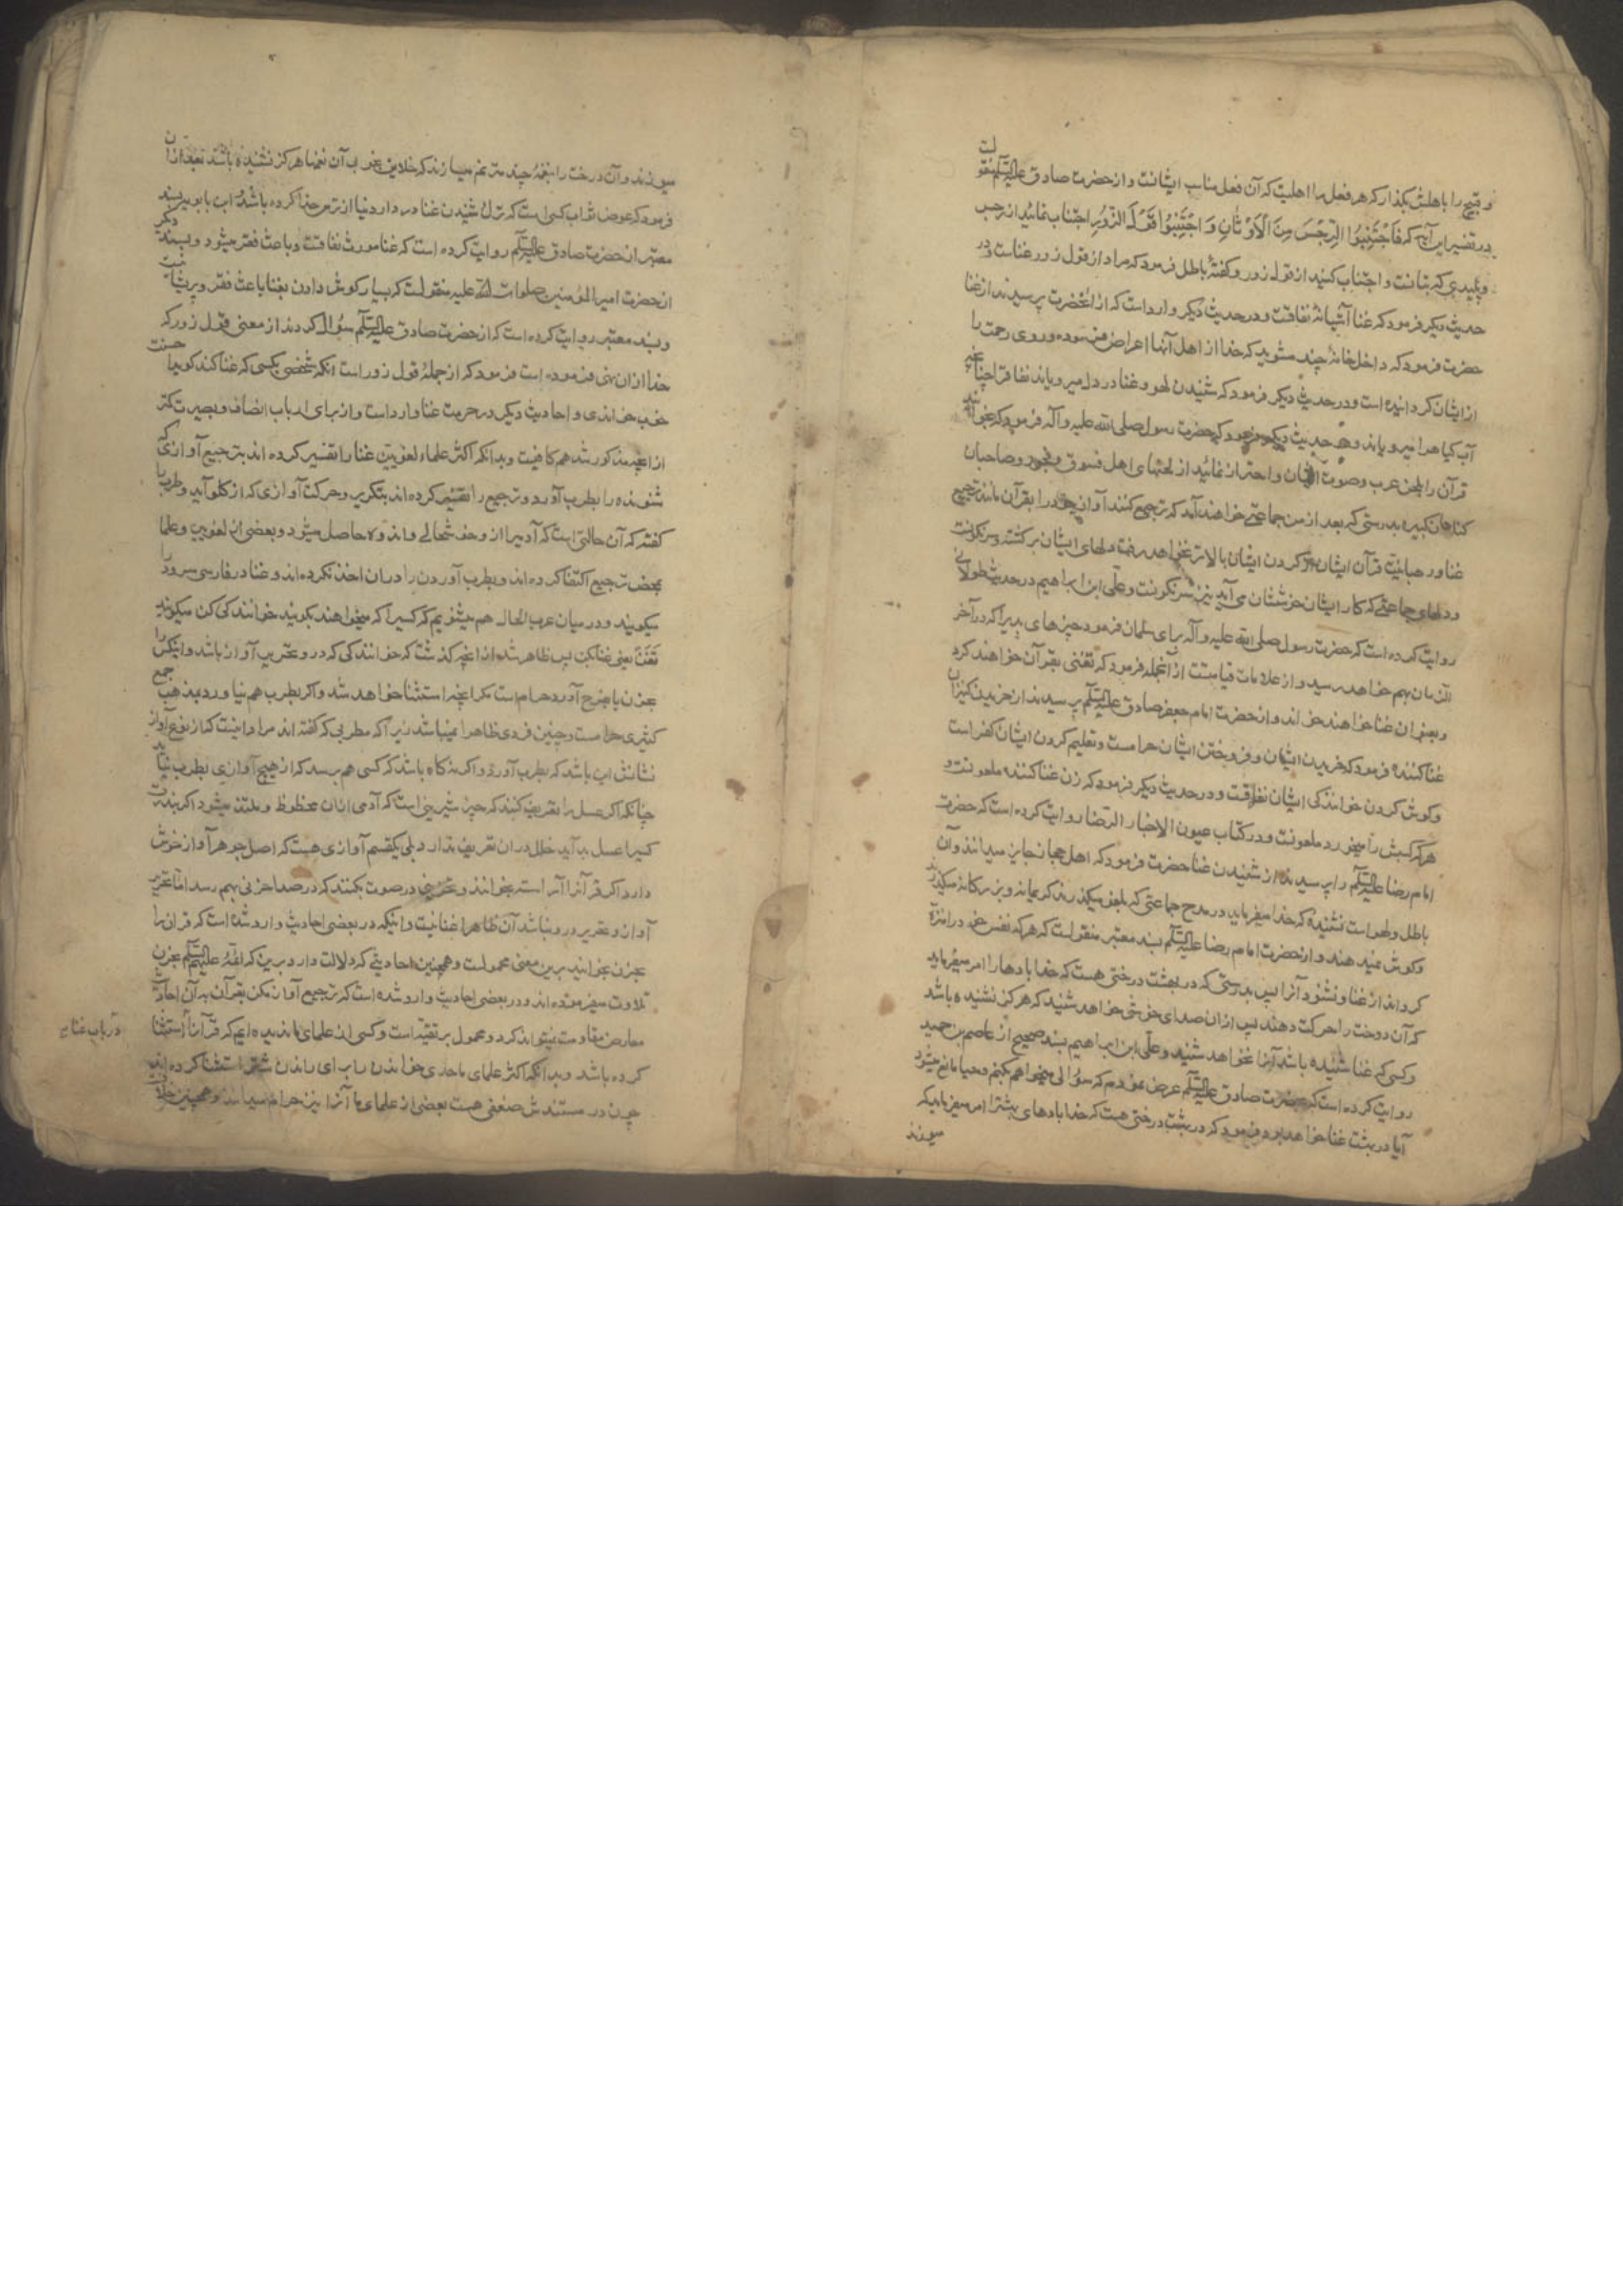 و قبیح را باهلش بگذار که هر فعل را اهلیت که آن فعل مناسب ایشانست و از حضرت صادق علیه السلم منقولست
در تفسیر این آیه که فَاجْتَنِبُوا الرِّجْسَ مِنَ الْاَوْثَانِ وَ اجْتَنِبُوا قَوْلَ الزُّورِ اجتناب نمائید از رجس
و پلیدی که بتانست و اجتناب کنید از قول زور و گفتهٔ باطل فرمود که مراد از قول زور غناست و در
حدیث دیگر فرمود که غنا آشیانهٔ نفاقست و در حدیث دیگر وارد است که از انحضرت پرسیدند از غنا
حضرت فرمود که داخل خانهٔ چند مشوید که خدا از اهل آنها اعراض فرموده و روی رحمت را
از ایشان گردانیده است و در حدیث دیگر فرمود که شنیدن لهو و غنا در دل میرویاند نفاق را چنانچه
آب گیاه را میرویاند و در حدیث دیگر فرمود که حضرت رسول صلی الله علیه و آله فرمود که بخوانید
قرآن را بلحن عرب و صوت ایشان و احتراز نمائید از لحنهای اهل فسوق و فجور و صاحبان
گناهان کبیره بدرستی که بعد از من جماعتی خواهند آمد که ترجیع کنند آواز خود را بقرآن مانند ترجیع
غنا و رهبانیت قرآن ایشان از گردن ایشان بالاتر نخواهد رفت دلهای ایشان برگشته و سرنگونست
و دلهای جماعتی که کار ایشان خوششان می آید نیز سرنگونست و علی ابن ابراهیم در حدیث طولانی
روایت کرده است که حضرت رسول صلی الله علیه و آله برای سلمان فرمود چیزهای بدیرا که در آخر
الزمان بهم خواهد رسید و از علامات قیامتست از آنجمله فرمود که تغنی بقرآن خواهند کرد
و بعنوان غنا خواهند خواند و از حضرت امام جعفر صادق علیه السلم پرسیدند از خریدن کنیزان
غنا کننده فرمود که خریدن ایشان و فروختن ایشان حرامست و تعلیم کردن ایشان کفر است
و گوش کردن خوانندگی ایشان نفاقست و در حدیث دیگر فرمود که زن غنا کننده ملعونست و
هر که کسبش را میخورد ملعونست و در کتاب عیون الاخبار الرضا روایت کرده است که حضرت
امام رضا علیه السلم را پرسیدند از شنیدن غنا حضرت فرمود که اهل حجاز جایز میدانند و آن
باطل و لهو است نشنیدهٔ که خدا میفرماید در مدح جماعتی که بلغو میگذرند کریمانه و بزرگانه میگذرند
و گوش نمیدهند و از حضرت امام رضا علیه السلم بسند معتبر منقولست که هر که نفس خود را منزه
گرداند از غنا و نشنود آنرا پس بدرستی که در بهشت درختی هست که خدا بادها را امر میفرماید
که آن درخت را حرکت دهند پس از ان صدای خوشی خواهد شنید که هرگز نشنیده باشد
و کسی که غنا شنیده باشد آنرا نخواهد شنید و علی ابن ابراهیم بسند صحیح از عاصم بن حمید
روایت کرده است که بحضرت صادق علیه السلم عرض نمودم که سؤالی میخواهم بکنم و حیا مانع میشود
آیا در بهشت غنا خواهد بود فرمود که در بهشت درختی هست که خدا بادهای بهشت را امر میفرماید که
میوزند
میوزند و آن درخت را بنغمهٔ چند مترنم میسازند که خلایق بخوبی آن نغمها هرگز نشنیده باشند بعد از ان
فرمود که عوض ثواب کسی است که ترک شنیدن غنا در دار دنیا از ترس خدا کرده باشد و ابن بابویه بسند
معتبر از حضرت صادق علیه السلم روایت کرده است که غنا مورث نفاقست و باعث فقر میشود و بسند دیگر
از حضرت امیر المؤمنین صلوات الله علیه منقولست که بسیار گوش دادن بغنا باعث فقر و پریشانیست
و بسند معتبر روایت کرده است که از حضرت صادق علیه السلم سؤال کردند از معنی قول زور که
خدا از ان نهی فرموده است فرمود که از جملهٔ قول زور است انکه شخصی بکسی که غنا کند گوید احسنت
خوب خواندی و احادیث دیگر در حرمت غنا وارد است و از برای ارباب انصاف و بصیرت کمتر
از انچه مذکور شد هم کافیست و بدانکه اکثر علماء لغویین غنا را تفسیر کرده اند بترجیع آوازی که
شنونده را بطرب آورد و ترجیع را تفسیر کرده اند بتکریر و حرکت آوازی که از گلو آید و طرب را
گفته که آن حالتی است که آدمی را از وجد خوشحالی و اندوه حاصل میشود و بعضی از لغویین و علما
بمحض ترجیع اکتفا کرده اند و بطرب آوردن را در ان اخذ نکرده اند و غنا در فارسی سرود را
میگویند و در میان عرب الحال هم میشنویم که کسیرا که میخواهند بگویند خوانندگی کن میگویند
تَغَنَّ یعنی غنا بکن پس ظاهر شد از انچه گذشت که خوانندگی که در و تحریر آواز باشد و اینکس را
بحزن یا بفرح آورد حرامست مگر انچه استثنا خواهد شد و اگر بطرب هم نیاورد بمذهب جمع
کثیری حرامست و چنین فردی ظاهرا نمیباشد زیرا که مطربی که گفته اند مراد اینست که از نوع آواز
شانش این باشد که بطرب آورد و اگر نه گاه باشد که کسی هم برسد که از هیچ آوازی بطرب نیاید
چنانکه اگر عسل را تعریف کنند که چیز شیرینی است که آدمی از ان محظوظ و ملتذ میشود اگر بندرت
کسیرا عسل بد آید خلل در ان تعریف ندارد بلی یکقسم آوازی هست که اصل جوهر آواز خوش
دارد اگر قرآنرا آهسته بخوانند و حزینی در صوت بکنند که در صدا حزنی بهم رسد اما تحریر
آواز و تقریر در و نباشد آن ظاهرا غنا نیست و اینکه در بعضی احادیث وارد شده است که قرآنرا
بحزن بخوانید برین معنی محمولست و همچنین احادیثی که دلالت دارد برین که ائمهٔ علیهم السلم بحزن
تلاوت میفرموده اند و در بعضی احادیث وارد شده است که ترجیع آواز بکن بقرآن بدان احادیث
معارض مقاومت نمیتواند کرد و محمول بر تقیه است و کسی از علمای ما ندیده ایم که قرآنرا استثنا
کرده باشد و بدانکه اکثر علمای ما حدی خواندن را برای راندن شتر استثنا کرده اند
چون در مستندش ضعفی هست بعضی از علمای ما آنرا نیز حرام میدانند و همچنین خلاف
در باب غنا